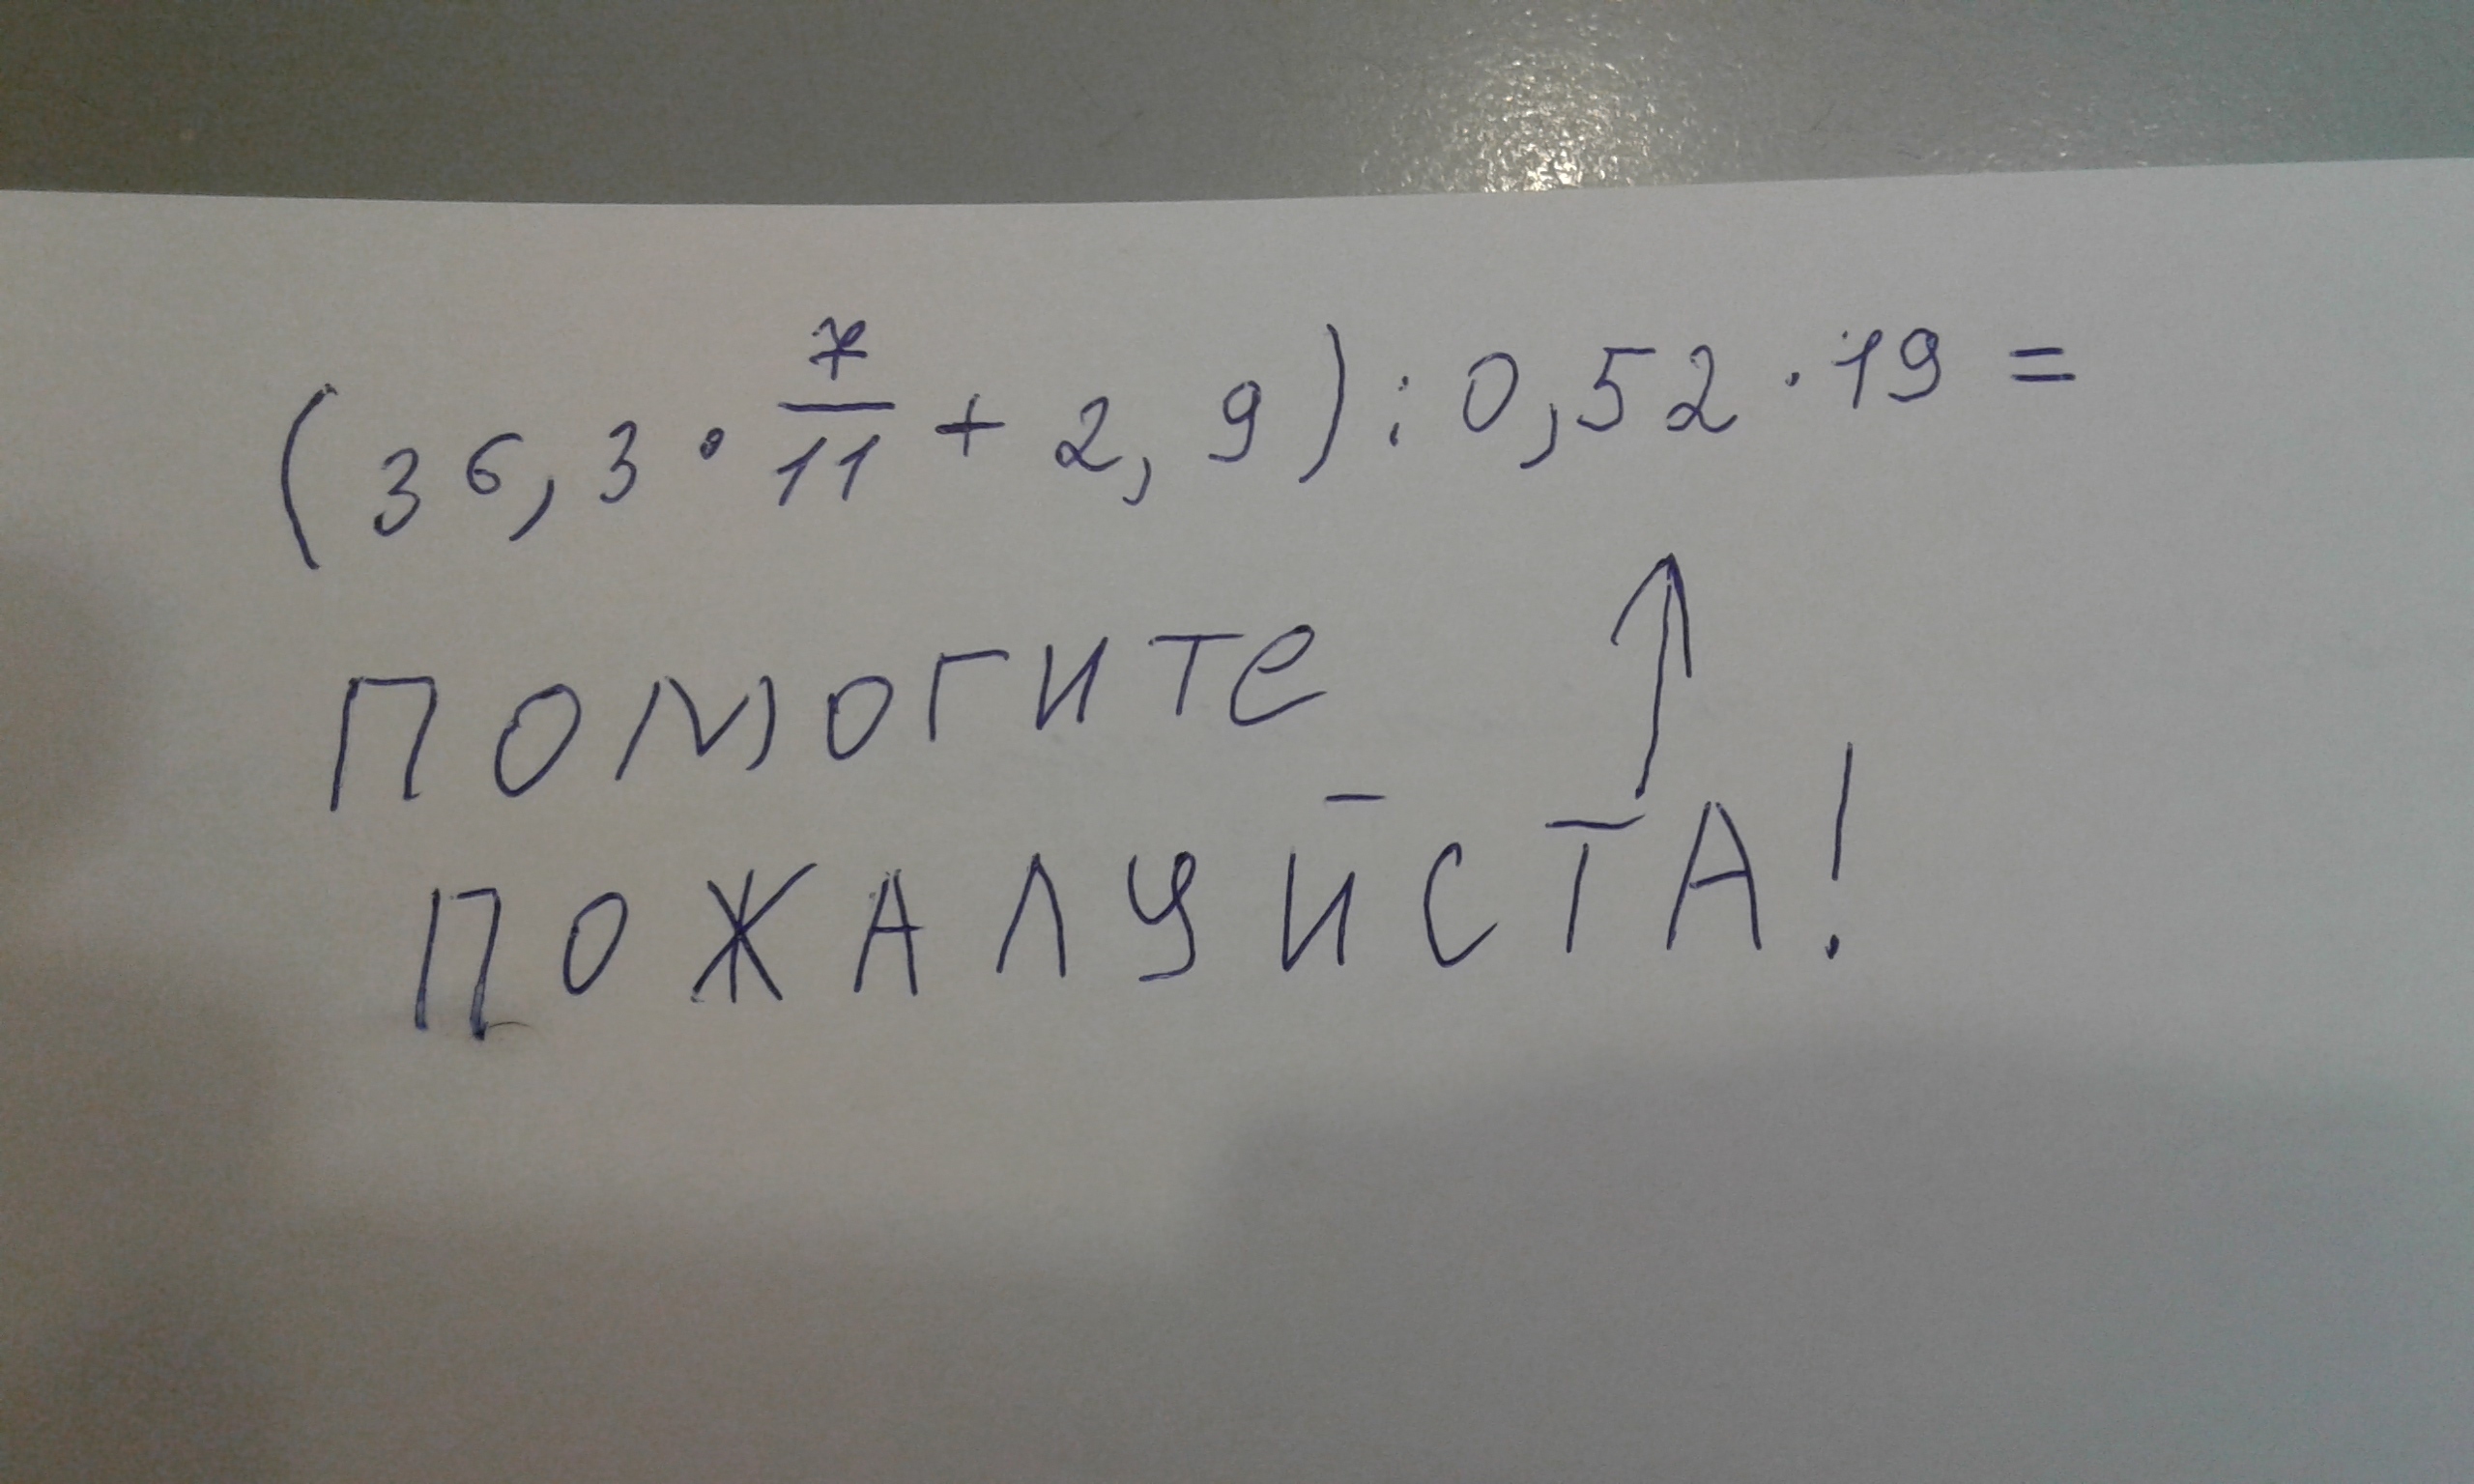 (36,3 · 7/11 + 2,9) : 0,52 · 19 =
помогите
ПОЖАЛУЙСТА!